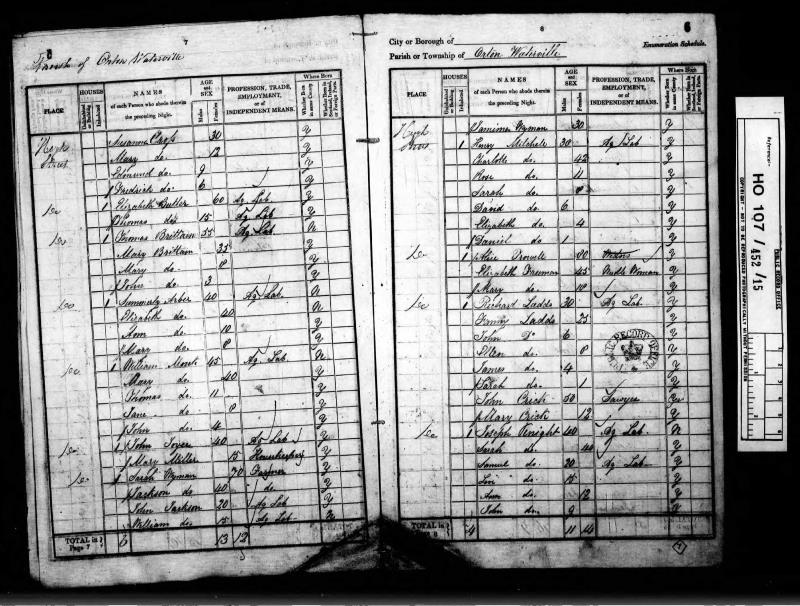 7
Parish of Orton Waterville
PLACE
HOUSES
Uninhabited or Building
Inhabited
NAMES
of each Person who abode therein the preceding Night.
AGE and SEX
Males
Females
PROFESSION, TRADE, EMPLOYMENT, or of INDEPENDENT MEANS.
Where Born
Whether Born in same County
Whether Born in Scotland, Ireland, or Foreign Parts.
High Susanna 30 y
Mary do. 12 y
Edmund do. 9 y
Frederick do. 6 y
1 Elizabeth Butler 60 Ag Lab y
Thomas do. 15 Ag Lab y
1 Thomas Brittain 55 Ag Lab N
Mary Brittain 35 y
Mary do. 8 y
John do. 3 y
1 Arber 40 Ag Lab N
Elizabeth do. 40 y
Ann do. 10 y
Mary do. 8 y
1 William 45 Ag Lab N
Mary do. 40 y
Thomas do. 11 y
Jane do. 8 y
John do. 4 y
1 John 40 Ag Lab y
Mary Miller 15 y
1 Sarah Wyman 70 Farmer y
Jackson do. 40 do. y
John Jackson 20 Ag Lab y
William do. 15 Ag Lab
TOTAL in Page 7 6 13 12
8
6
City or Borough of
Enumeration Schedule.
Parish or Township of Orton Waterville
PLACE
HOUSES
Uninhabited or Building
Inhabited
NAMES
of each Person who abode therein the preceding Night.
AGE and SEX
Males
Females
PROFESSION, TRADE, EMPLOYMENT, or of INDEPENDENT MEANS.
Where Born
Whether Born in same County
Whether Born in Scotland, Ireland, or Foreign Parts.
High Wyman 30 y
1 Henry Mitchell 30 Ag Lab y
Charlotte do. 42 y
Rose do. 11 y
Sarah do. 8 y
David do. 6 y
Elizabeth do. 4 y
Daniel do. 1 y
1 80 y
Elizabeth Freeman 45 Woman y
Mary do. 10 y
1 Richard Ladds 30 Ag Lab y
Fanny Ladds 25 y
John Do 6 y
Ellen do. 8 y
James do. 4 y
Sarah do. 1 y
John Crick 50 Sawyer
Mary Crick 12 y
1 Joseph Knight 40 Ag Lab N
Sarah do. 40 y
Samuel do. 20 Ag Lab y
do. 15 y
Ann do. 12 y
John do. 9 y
TOTAL in Page 8 4 11 14
PUBLIC RECORD OFFICE
Reference:-
HO 107 / 452 / 15
PUBLIC RECORD OFFICE
COPYRIGHT - NOT TO BE REPRODUCED PHOTOGRAPHICALLY WITHOUT PERMISSION